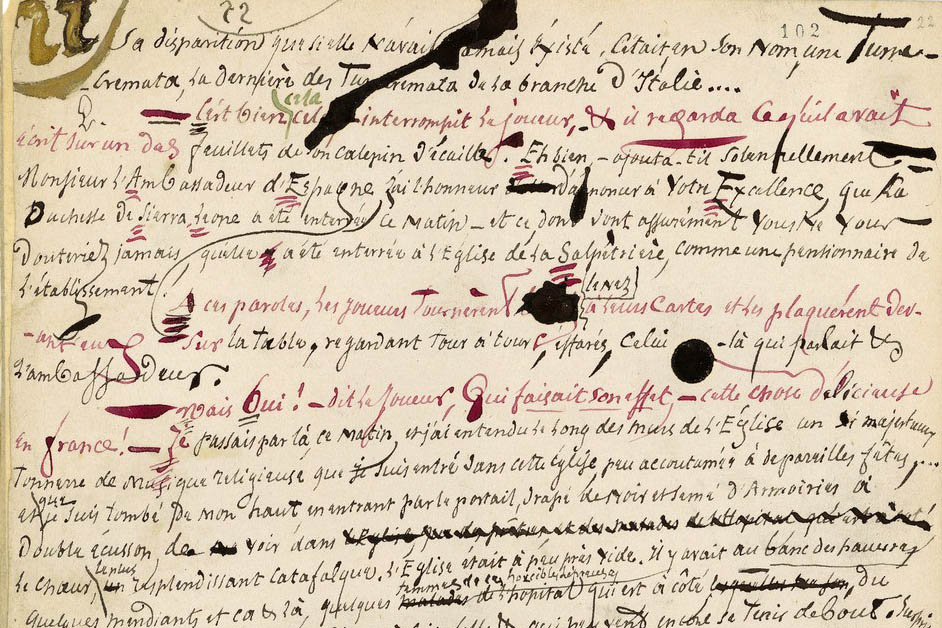 22 22 102 22
Sa disparition que si elle n'avait jamais existé. C'était en son nom, une Turre-
-Cremata, la dernière des Turrecremata de la branche d'Italie....
— C'est bien cela — interrompit le joueur, & il regarda ce qu'il avait
écrit sur un des feuillets de son calepin d'écaille. Eh bien, — ajouta-t-il solennellement —
Monsieur l'Ambassadeur d'Espagne, j'ai l'honneur d'annoncer à Votre Excellence, que la
Duchesse de Sierra-Leone a été enterrée ce matin — et ce dont vont assurément vous ne vous
douteriez jamais, qu'elle a été enterrée à l'Eglise de la Salpêtrière, comme une pensionnaire de
l'établissement.
A ces paroles, les joueurs tournèrent le nez à leurs cartes et les plaquèrent dev-
-ant eux sur la table, regardant tour à tour, effarés, celui -là qui parlait &
l'ambassadeur.
— Mais Oui! — dit le joueur, qui faisait son effet, — cette chose délicieuse
en france! — Je passais par là ce matin, et j'ai entendu le long des murs de l'Église un si majestueux
tonnerre de musique religieuse, que je suis entré dans cette Eglise peu accoutumée à de pareilles fêtes....
et que je suis tombé de mon haut en entrant par le portail, drapé de noir et semé d'Armoiries à
double écusson de voir dans
le chœur, le plus resplendissant catafalque. L'Eglise était à peu près vide. Il y avait au banc des pauvres
quelques mendiants et ça & là, quelques femmes de ces horribles lépreuses de l'hôpital qui est à côté, du
encore se tenir debout.